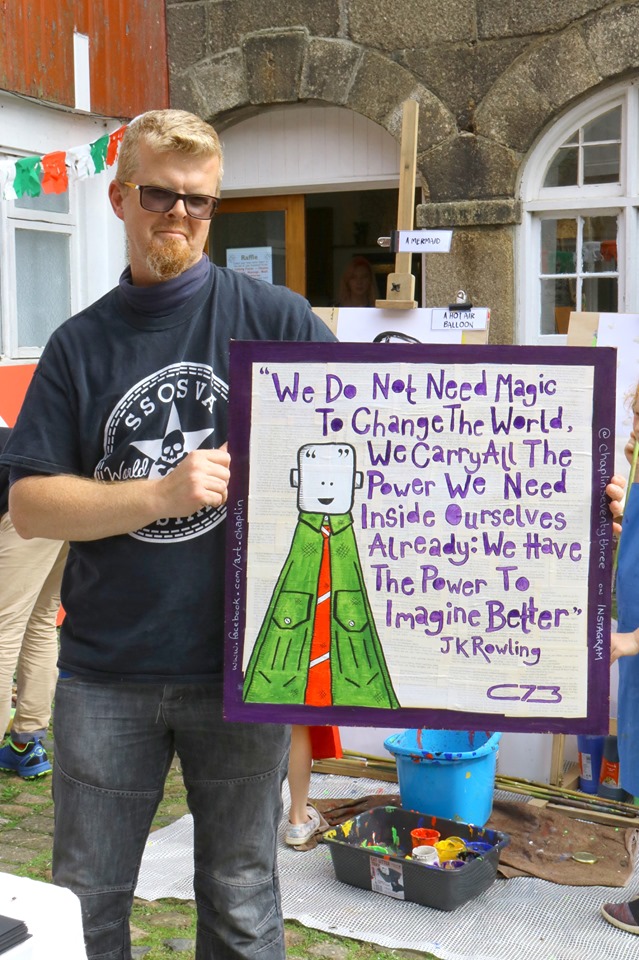 Raffle
A MERMAID
A HOT AIR
BALLOON
SSOSVA
World
"We Do Not Need Magic
To Change The World,
We Carry All The
Power We Need
Inside Ourselves
Already: We Have
The Power To
Imagine Better"
JK Rowling
C73
www.facebook.com/art.chaplin
@chaplinseventythree on INSTAGRAM